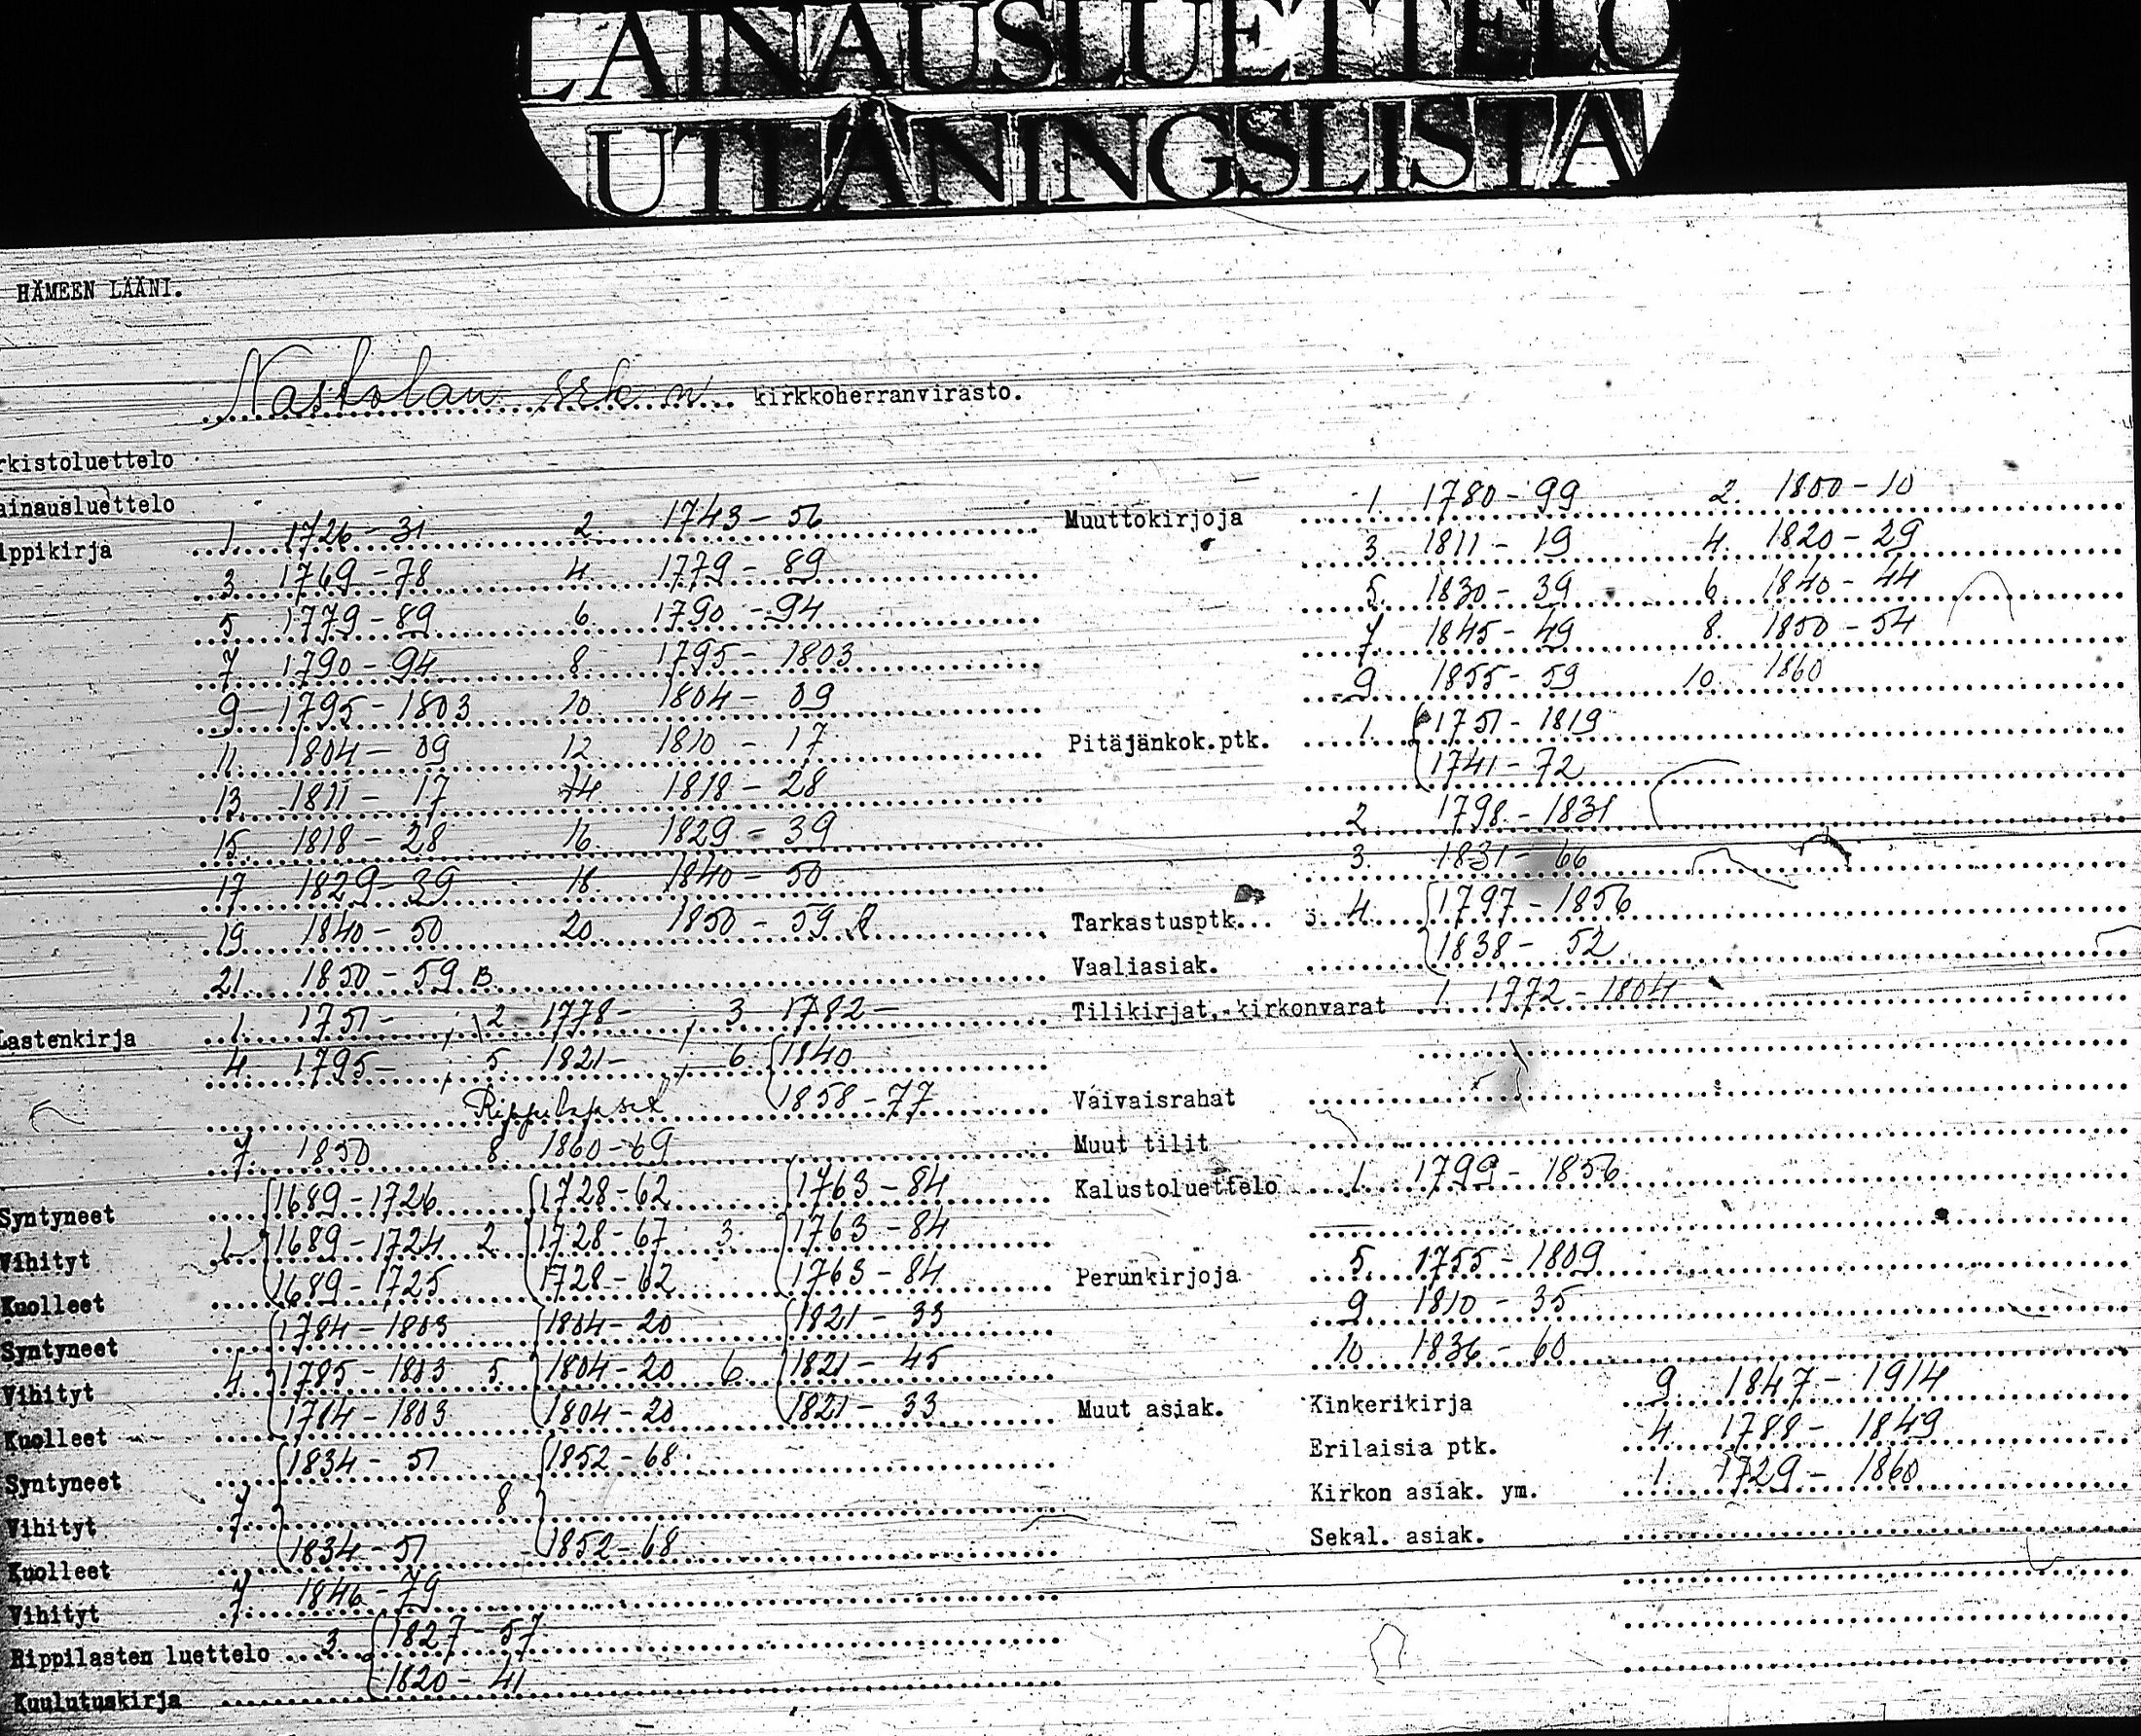 LAINAUSLUETTELO
UTLÅNINGSLISTA
HÄMEEN LÄÄNI.
Nastolan srk n kirkkoherranvirasto.
rkistoluettelo
ainausluettelo
ippikirja 1. 1726-31 2. 1743-56
3 1769-78 4. 1779-89
5 1779-89 6. 1790-94
7. 1790-94 8. 1795-1803
9 1795-1803 10. 1804-09
11. 1804-09 12 1810-17
13. 1811-17 14 1818-28
15. 1818-28 16. 1829-39
17 1829-39 18. 1840-50
19. 1840-50 20 1850-59
21. 1850-59 B
Lastenkirja 1. 1751- , 2 1778- , 3 1782-
4. 1795- , 5. 1821- , 6. 1840
Rippilapset 1858-77
7. 1850 8. 1860-69
Syntyneet 1689-1726 1728-62 1763-84
Vihityt 1. 1689-1724 2. 1728-67 3. 1763-84
Kuolleet 1689-1725 1728-62 1763-84
Syntyneet 1784-1803 1804-20 1821-33
Vihityt 4. 1785-1803 5. 1804-20 6. 1821-45
Kuolleet 1784-1803 1804-20 1821-33
Syntyneet 1834-51 1852-68
Vihityt 7. 8
Kuolleet 1834-51 1852-68
Vihityt 7. 1846-79
Rippilasten luettelo 3. 1827-57
Kuulutuskirja 1820-41
Muuttokirjoja 1. 1780-99 2. 1800-10
3. 1811-19 4. 1820-29
5. 1830-39 6. 1840-44
7. 1845-49 8. 1850-54
9 1855-59 10. 1860
Pitäjänkok.ptk. 1. 1751-1819
1741-72
2. 1798-1831
3. 1831-66
Tarkastusptk... 4. 1797-1856
Vaaliasiak. 1838-52
Tilikirjat,-kirkonvarat 1. 1772-1804
Vaivaisrahat
Muut tilit
Kalustoluettelo 1. 1799-1856
Perunkirjoja 5. 1755-1809
9. 1810-35
10. 1836-60
Muut asiak. Kinkerikirja 9. 1847-1914
Erilaisia ptk. 4. 1788-1849
Kirkon asiak. ym. 1. 1729-1860
Sekal. asiak.